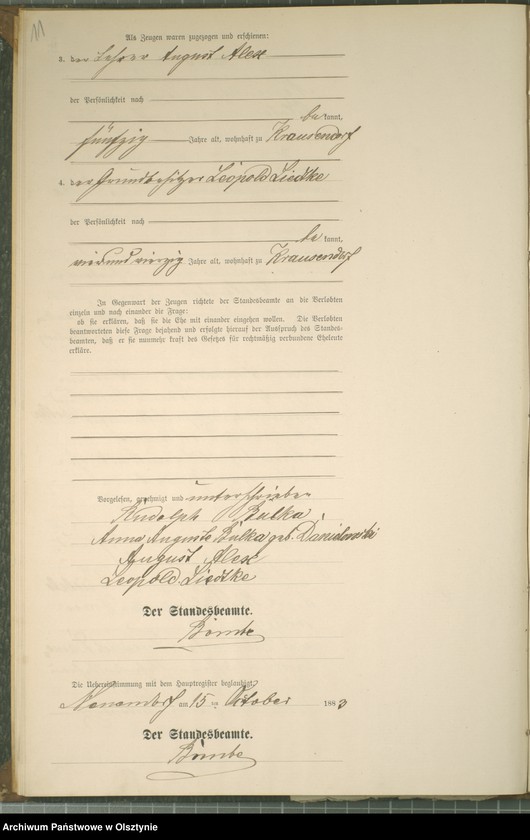 11
Als Zeugen waren zugezogen und erschienen:
3. der Lehrer August Alex
der Persönlichkeit nach
be kannt,
fünfzig Jahre alt, wohnhaft zu Krausendorf
4. der Grundbesitzer Leopold Liedtke
der Persönlichkeit nach
be kannt,
vierundvierzig Jahre alt, wohnhaft zu Krausendorf
In Gegenwart der Zeugen richtete der Standesbeamte an die Verlobten
einzeln und nach einander die Frage:
ob sie erklären, daß sie die Ehe mit einander eingehen wollen. Die Verlobten
beantworteten diese Frage bejahend und erfolgte hierauf der Ausspruch des Standes-
beamten, daß er sie nunmehr kraft des Gesetzes für rechtmäßig verbundene Eheleute
erkläre.
Vorgelesen, genehmigt und unterschrieben
Rudolph Bulka
Anna Auguste Bulka geb. Danielowski
August Alex
Leopold Liedtke
Der Standesbeamte.
Die Uebereinstimmung mit dem Hauptregister beglaubigt
am 15 ten October 1883
Der Standesbeamte.
Archiwum Państwowe w Olsztynie